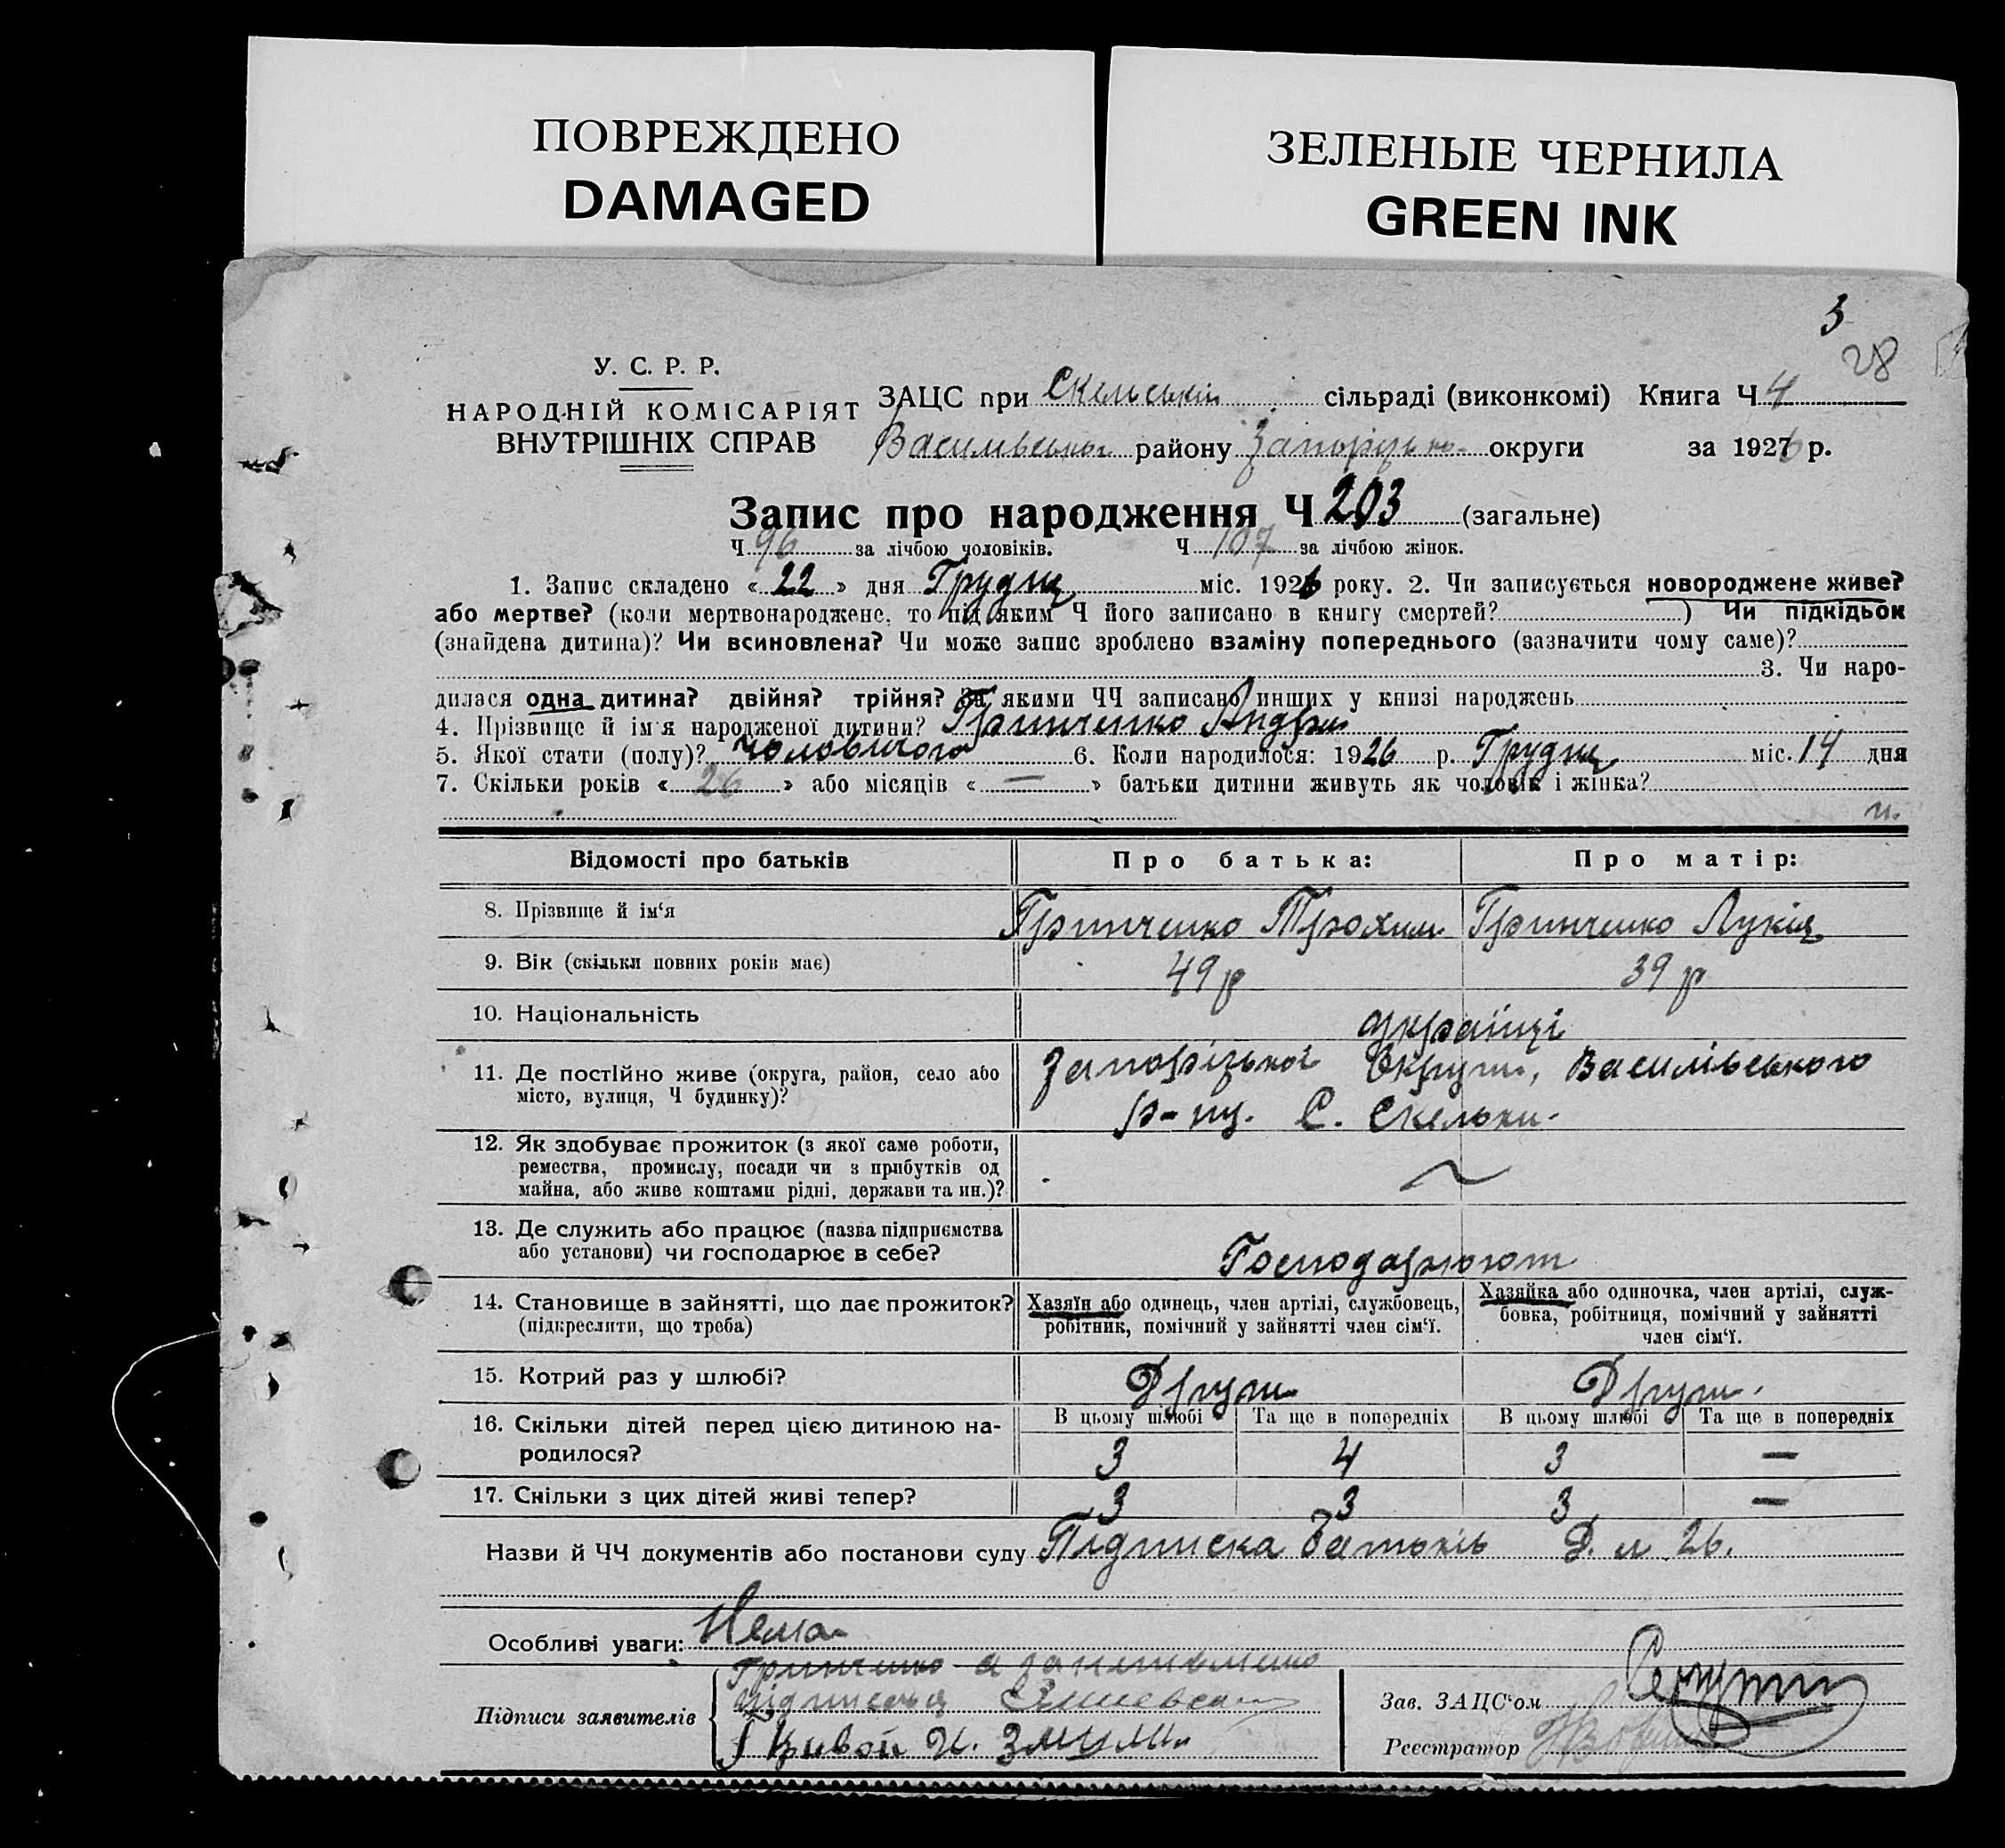 ПОВРЕЖДЕНО
DAMAGED
ЗЕЛЕНЫЕ ЧЕРНИЛА
GREEN INK
3
28
У. С. Р. Р.
НАРОДНІЙ КОМІСАРІЯТ
ВНУТРІШНІХ СПРАВ
ЗАЦС при Скельській сільраді (виконкомі) Книга Ч 4
Васильвської району Запорізької округи за 1926 р.
Запис про народження Ч 203 (загальне)
Ч 96 за лічбою чоловіків. Ч 107 за лічбою жінок.
1. Запис складено « 22 » дня Грудня міс. 1926 року. 2. Чи записується новороджене живе?
або мертве? (коли мертвонароджене, то під яким Ч його записано в книгу смертей? ) Чи підкідьок
(знайдена дитина)? Чи всиновлена? Чи може запис зроблено взаміну попереднього (зазначити чому саме)?
3. Чи наро-
дилася одна дитина? двійня? трійня? За якими ЧЧ записано инших у книзі народжень
4. Прізвище й ім'я народженої дитини? Гринченко Андрій
5. Якої стати (полу)? чоловічого 6. Коли народилося: 1926 р. Грудня міс. 14 дня
7. Скільки років « 26 » або місяців « — » батьки дитини живуть як чоловік і жінка?
Відомості про батьків Про батька: Про матір:
8. Прізвище й ім'я Гринченко Трохим Гринченко Лукія
9. Вік (скільки повних років має) 49 р 39 р
10. Національність українці
11. Де постійно живе (округа, район, село або
місто, вулиця, Ч будинку)?
Запорізької Округи, Василівського
р-ну. С. Скельки.
12. Як здобуває прожиток (з якої саме роботи,
ремества, промислу, посади чи з прибутків од
майна, або живе коштами рідні, держави та ин.)?
13. Де служить або працює (назва підприємства
або установи) чи господарює в себе?
Господарюют
14. Становище в зайнятті, що дає прожиток?
(підкреслити, що треба)
Хазяїн або одинець, член артілі, службовець,
робітник, помічний у зайнятті член сім'ї.
Хазяйка або одиночка, член артілі, служ-
бовка, робітниця, помічний у зайнятті
член сім'ї.
15. Котрий раз у шлюбі? Други Други.
16. Скільки дітей перед цією дитиною на-
родилося?
В цьому шлюбі Та ще в попередніх В цьому шлюбі Та ще в попередніх
3 4 3 —
17. Скільки з цих дітей живі тепер? 3 3 3 —
Назви й ЧЧ документів або постанови суду Підписка батьків Д. л 26.
Особливі уваги: Нема
Гринченко а за неписменно
Підписи заявителів
Кривой И.
Зав. ЗАЦС'ом
Реєстратор